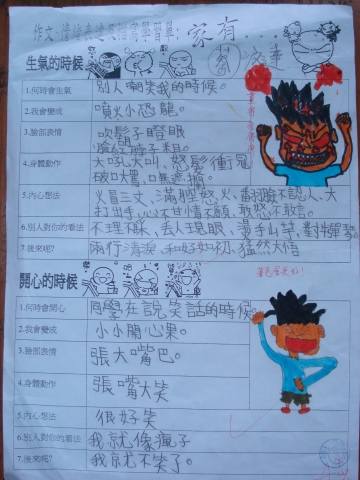 作文:情緒表達及描寫學習單:家有...
生氣的時候
1.何時會生氣 別人嘲笑我的時候。
2.我會變成 噴火小恐龍。
3.臉部表情 吹鬍子瞪眼
臉紅脖子粗。
4.身體動作 大吼大叫、怒髮衝冠
破口大罵、口無遮攔
5.內心想法 火冒三丈、滿腔怒火、翻臉不認人、大
打出手、心不甘情不願、敢怒不敢言。
6.別人對你的看法 不理不睬、丟人現眼、燙手山芋、對牛彈琴。
7.後來呢? 兩行清淚、和好如初、猛然大悟
開心的時候
1.何時會開心 同學在說笑話的時候。
2.我會變成 小小開心果。
3.臉部表情 張大嘴巴。
4.身體動作 張嘴大笑
5.內心想法 很好笑
6.別人對你的看法 我就像瘋子
7.後來呢? 我就不笑了。